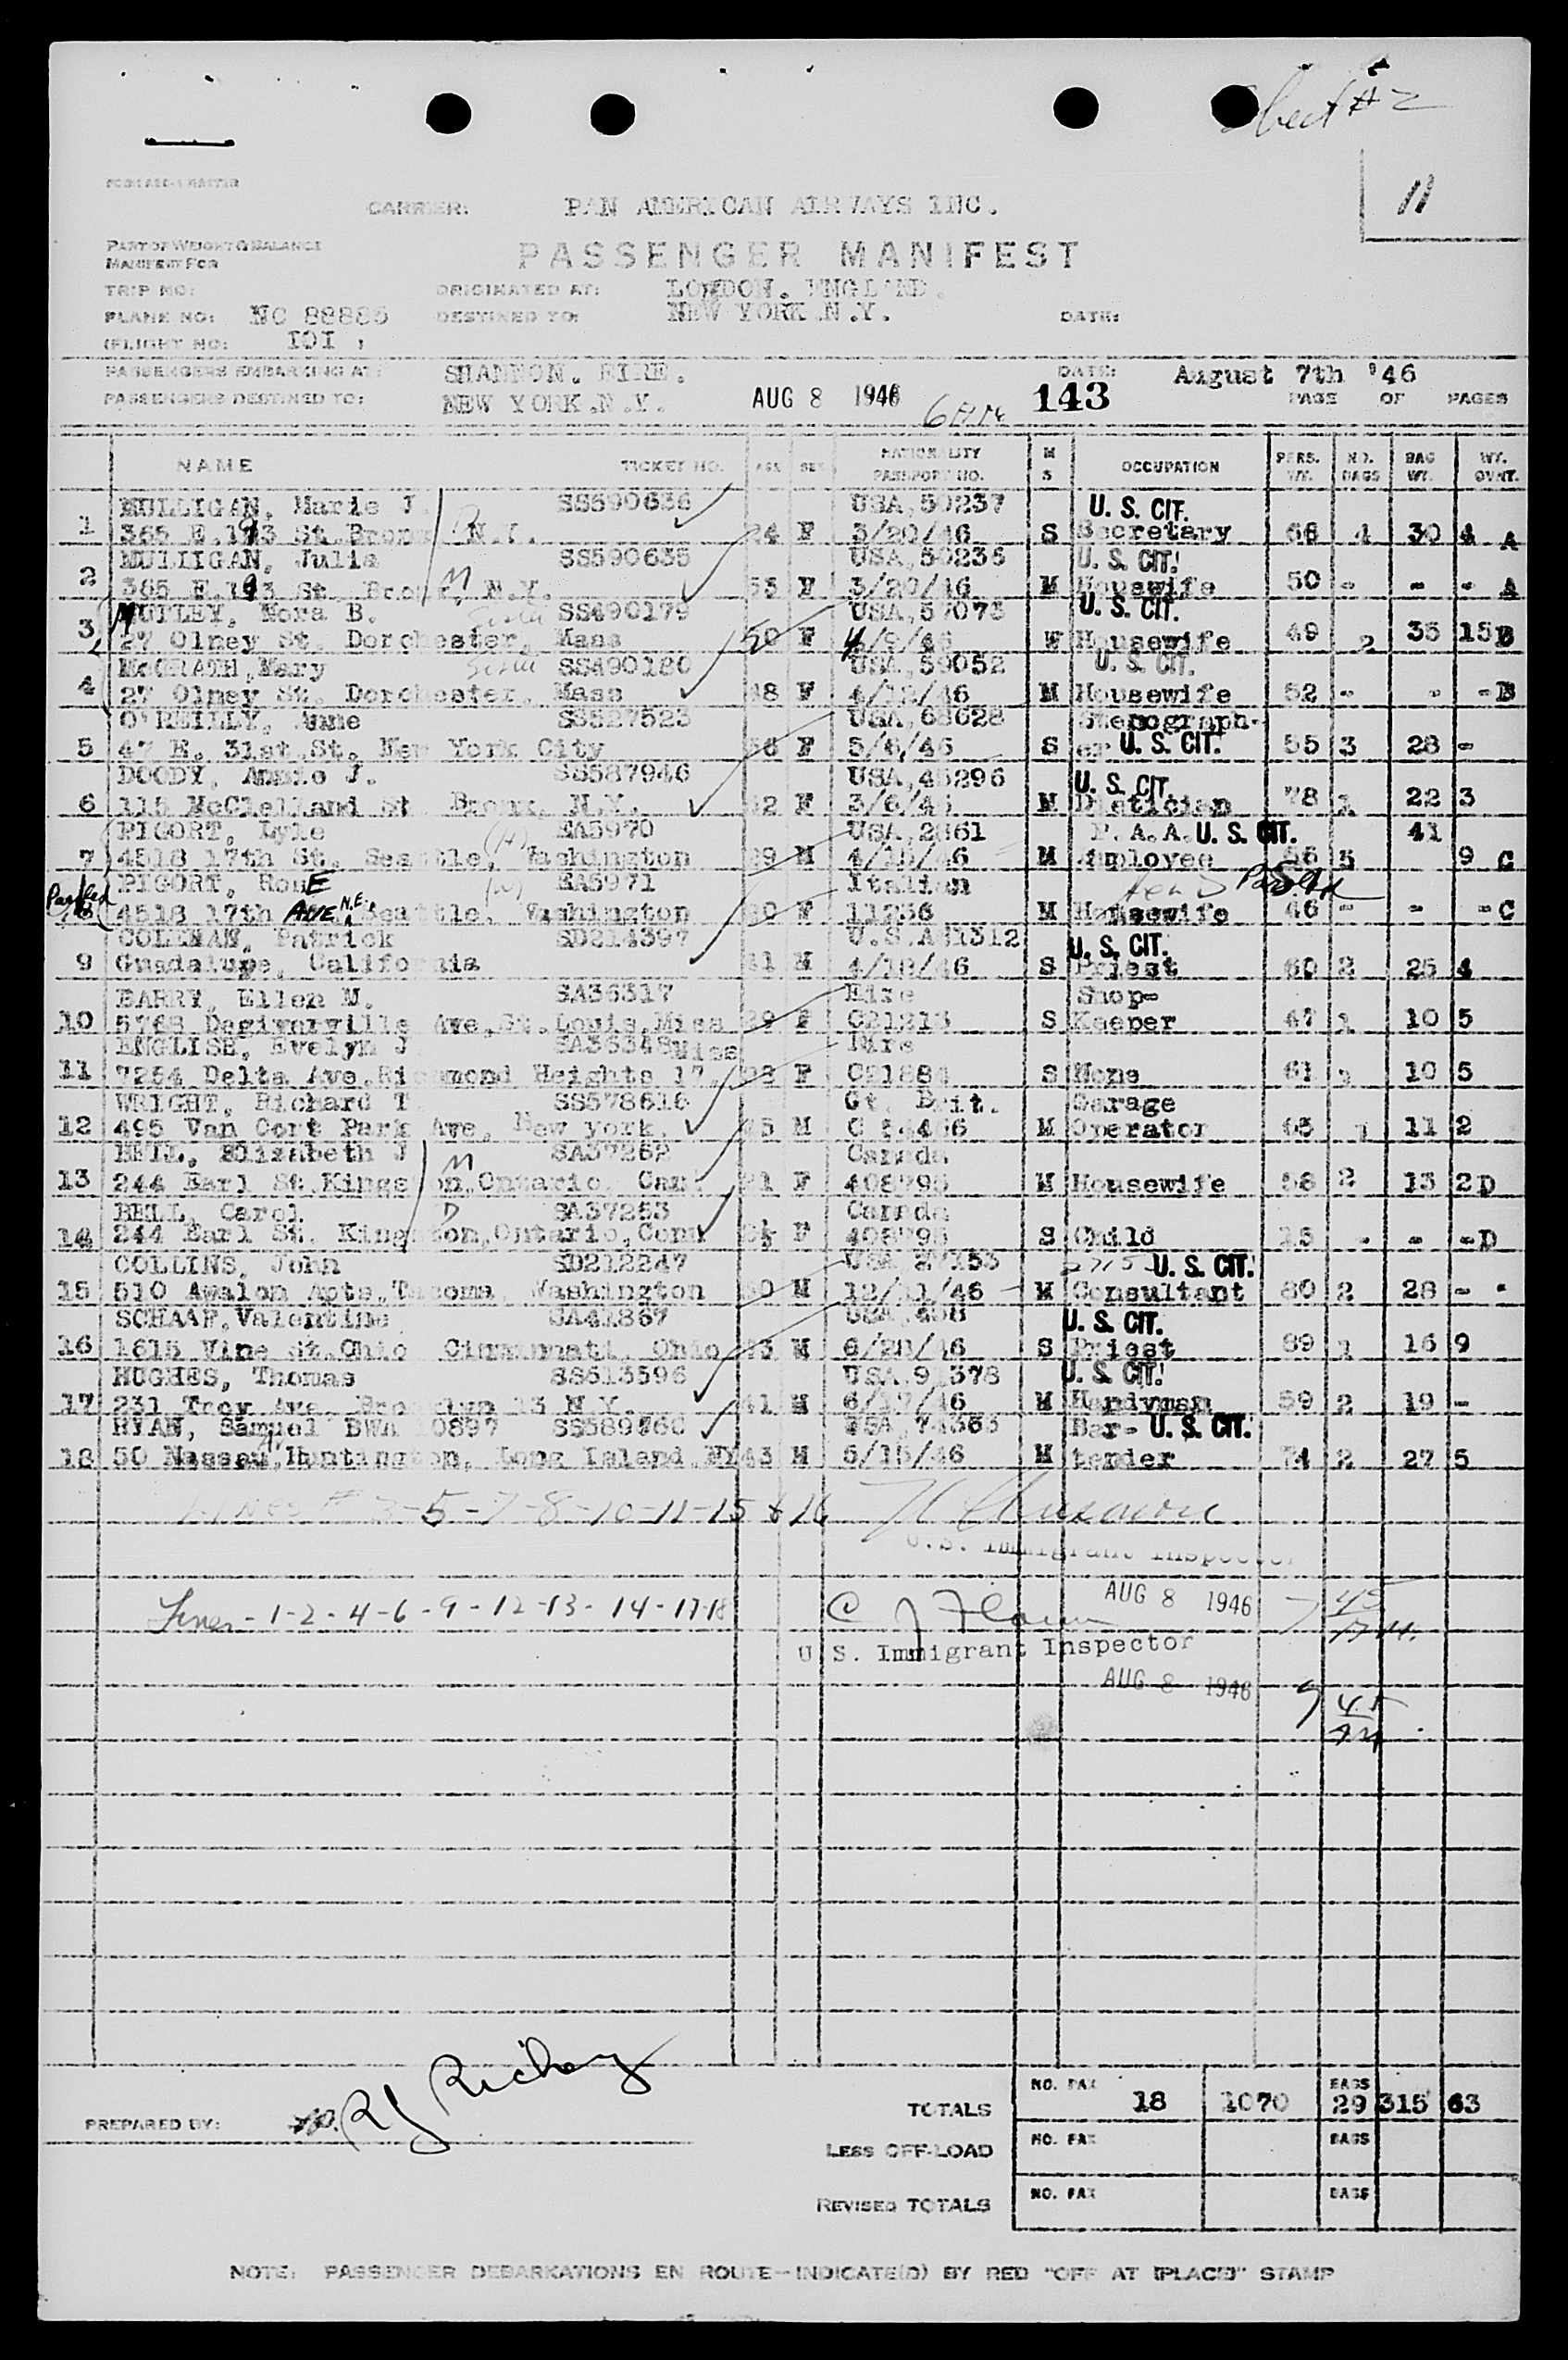 Sheet # 2
11
CARRIER: PAN AMERICAN AIRWAYS INC.
PART OF WEIGHT & BALANCE
MANIFEST FOR
PASSENGER MANIFEST
TRIP NO: ORIGINATED AT: LONDON. ENGLAND.
PLANE NO: NC 88885 DESTINED TO: NEW YORK N.Y. DATE:
FLIGHT NO: IOI
PASSENGERS EMBARKING AT: SHANNON. EIRE. DATE: August 7th '46
PASSENGERS DESTINED TO: NEW YORK.N.Y. AUG 8 1946 143 PAGE OF PAGES
NAME TICKET NO. AGE SEX NATIONALITY PASSPORT NO. M S OCCUPATION PERS. WT. NO. BAGS BAG WT. WT. OVWT.
MULLIGAN, Marie J. SS590636 USA, 50237 U. S. CIT.
1 365 E.193 St. Bronx N.Y. 24 F 3/20/46 S Secretary 4 30 4 A
MULLIGAN, Julia M SS590635 USA, 50236 U. S. CIT.
2 365 E.193 St. Bronx, N.Y. 53 F 3/20/46 M Housewife 50 - - - A
MUTLEY, Nora B. Sister SS490179 USA, 57073 U. S. CIT.
3 27 Olney St. Dorchester, Mass 50 F 4/9/46 Housewife 49 2 35 15 B
McGRATH, Mary Sister SS490180 USA, 59052 U. S. CIT.
4 27 Olney St. Dorchester, Mass 48 F 4/12/46 M Housewife 52 - - - B
O'REILLY, Anne SS527523 USA, 68628 Stenograph-
5 47 E. 31st. St. New York City 36 F 5/6/46 S er U. S. CIT. 55 3 28 -
DOODY, Annie J. SS587946 USA, 45296 U. S. CIT.
6 115 McClelland St Bronx, N.Y. F 3/6/46 M Dietician 78 1 22 3
PIGORT, Lyle (H) EA5970 USA, 2861 P. A. A. U. S. CIT. 41
7 4518 17th St. Seattle, Washington 29 M 4/15/46 M Employee 5 9 C
PIGORT, RonE (W) EA5971 Italian
Passed 4518 17th AVE. N.E. Seattle, Washington 30 F 11236 M Housewife 46 - - - C
COLEMAN, Patrick SD214397 U.S.A 81312 U. S. CIT.
9 Guadalupe, California 41 M 4/18/46 S Priest 60 2 25 4
BARRY, Ellen M. SA36317 Eire Shop-
10 5768 Ave, St. Louis, Miss 29 F C21213 S Keeper 47 1 10 5
ENGLISH, Evelyn J. SA36348 Miss Eire
11 7254 Delta Ave. Richmond Heights 17. F C21884 S None 61 1 10 5
WRIGHT, Richard T. SS578616 Gt. Brit. Garage
12 495 Van Cort Park Ave, New york. M M Operator 1 11 2
BELL, Elizabeth J M SA37252 Canada
13 244 Earl St. Kingston, Ontario. Can. F 408795 M Housewife 58 2 13 2 D
BELL, Carol D SA37253 Canada
14 244 Earl St. Kingston, Ontario, Cann F 408795 S Child 15 - - - D
COLLINS, John SD212247 USA 27153 27153 U. S. CIT.
15 510 Awalon Apts, Tacoma Washington M 12/11/46 M Consultant 80 2 28 -
SCHAAF, Valentine SA41867 USA, 458 U. S. CIT.
16 1615 Vine St. Ohio Cincinnati, Ohio M 6/28/46 S Priest 89 1 16 9
HUGHES, Thomas SS513596 USA 91378 U. S. CIT.
17 231 Troy Ave. Brooklyn 13 N.Y. 41 M 6/17/46 M Handyman 59 2 19 -
RYAN, Samuel SS589760 USA, 74363 Bar- U. S. CIT.
18 50 Nassau, Huntington, Long Island NY 43 M 5/15/46 M tender 74 2 27 5
Lines # 3-5-7-8-10-11-15 & 16
U.S. Immigrant Inspector
Lines - 1-2-4-6-9-12-13-14-17-18 AUG 8 1946
U. S. Immigrant Inspector
AUG 8 1946
PREPARED BY: RJ Richey
TOTALS NO. PAX 18 1070 BAGS 29 315 63
LESS OFF-LOAD NO. PAX BAGS
REVISED TOTALS NO. PAX BAGS
NOTE: PASSENGER DEBARKATIONS EN ROUTE-INDICATE(D) BY RED "OFF AT (PLACE)" STAMP